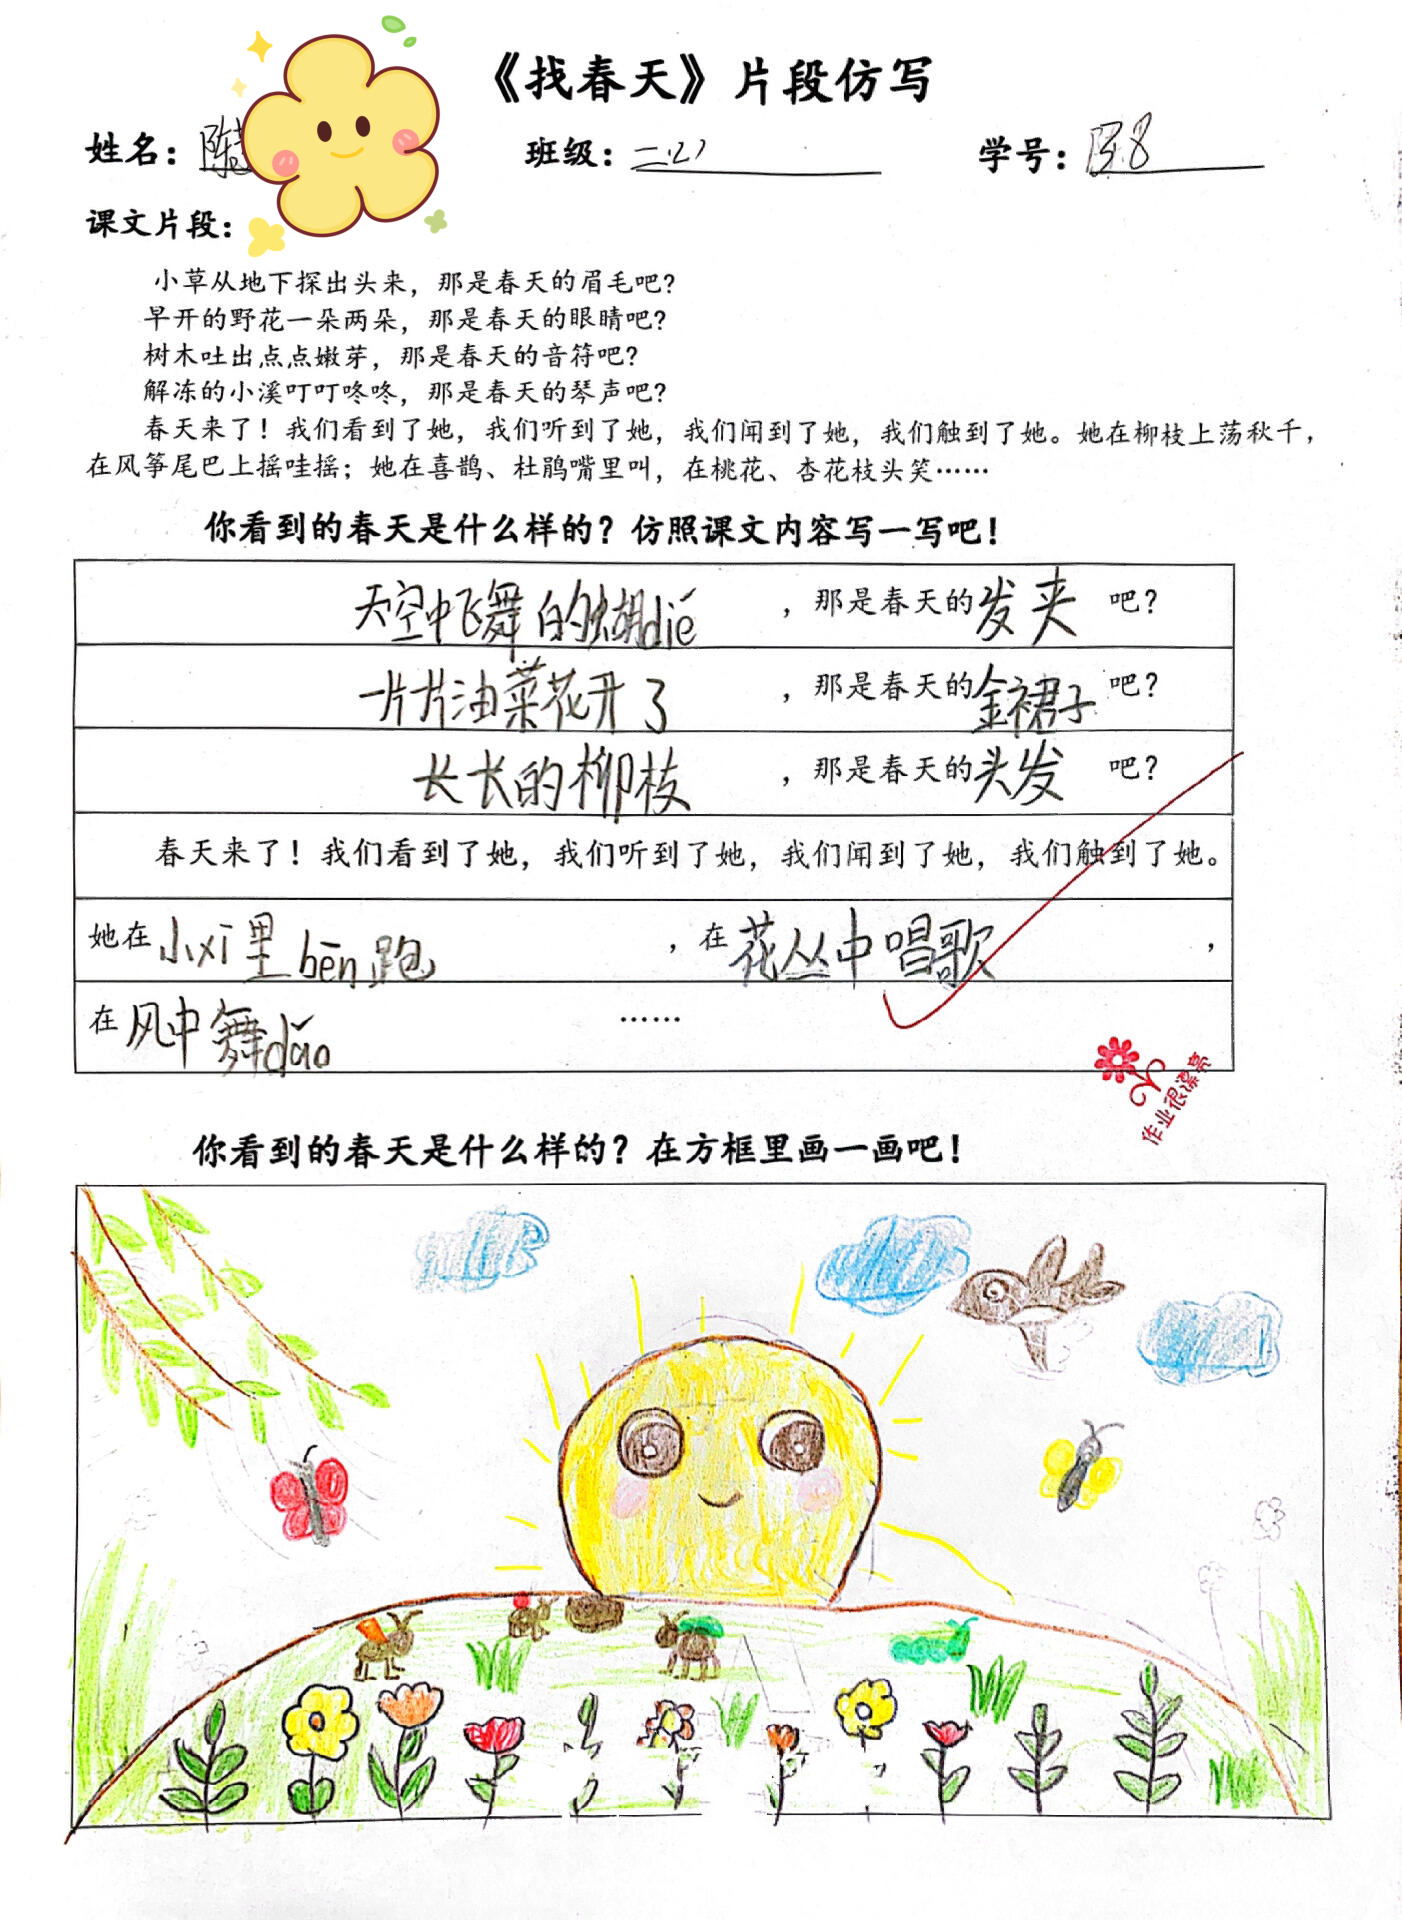 《找春天》片段仿写
姓名：陈 班级：二(2) 学号：8
课文片段：
小草从地下探出头来，那是春天的眉毛吧？
早开的野花一朵两朵，那是春天的眼睛吧？
树木吐出点点嫩芽，那是春天的音符吧？
解冻的小溪叮叮咚咚，那是春天的琴声吧？
春天来了！我们看到了她，我们听到了她，我们闻到了她，我们触到了她。她在柳枝上荡秋千，
在风筝尾巴上摇哇摇；她在喜鹊、杜鹃嘴里叫，在桃花、杏花枝头笑……
你看到的春天是什么样的？仿照课文内容写一写吧！
天空中飞舞的蝴dié，那是春天的发夹吧？
一片片油菜花开了，那是春天的金裙子吧？
长长的柳枝，那是春天的头发吧？
春天来了！我们看到了她，我们听到了她，我们闻到了她，我们触到了她。
她在小xī里bēn跑，在花丛中唱歌，
在风中舞dǎo……
作业很漂亮
你看到的春天是什么样的？在方框里画一画吧！